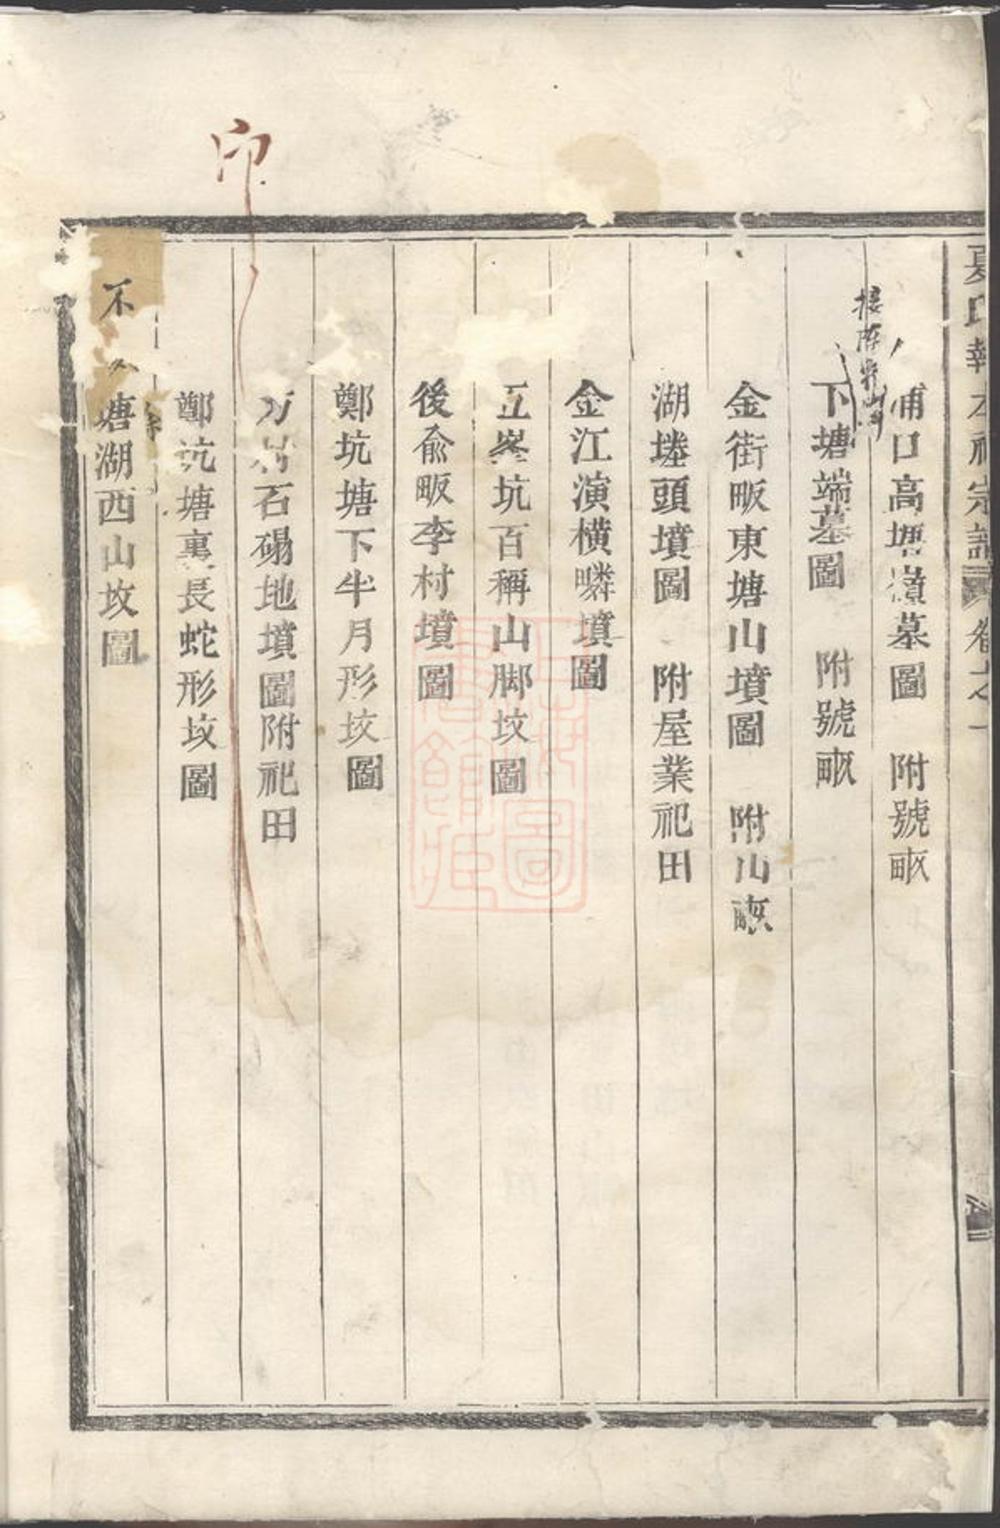 夏氏報本祠宗譜 卷之一
浦口高塘嶺墓圖 附號畝
下塘端墓圖 附號畝
金街畈東塘山墳圖 附山畝
湖塍頭墳圖 附屋業祀田
金江演橫疄墳圖
五峯坑百稱山脚坟圖
後俞畈李村墳圖
鄭坑塘下半月形坟圖
方村石磆地墳圖附祀田
鄭坑塘裏長蛇形坟圖
塘湖西山坟圖
不
印